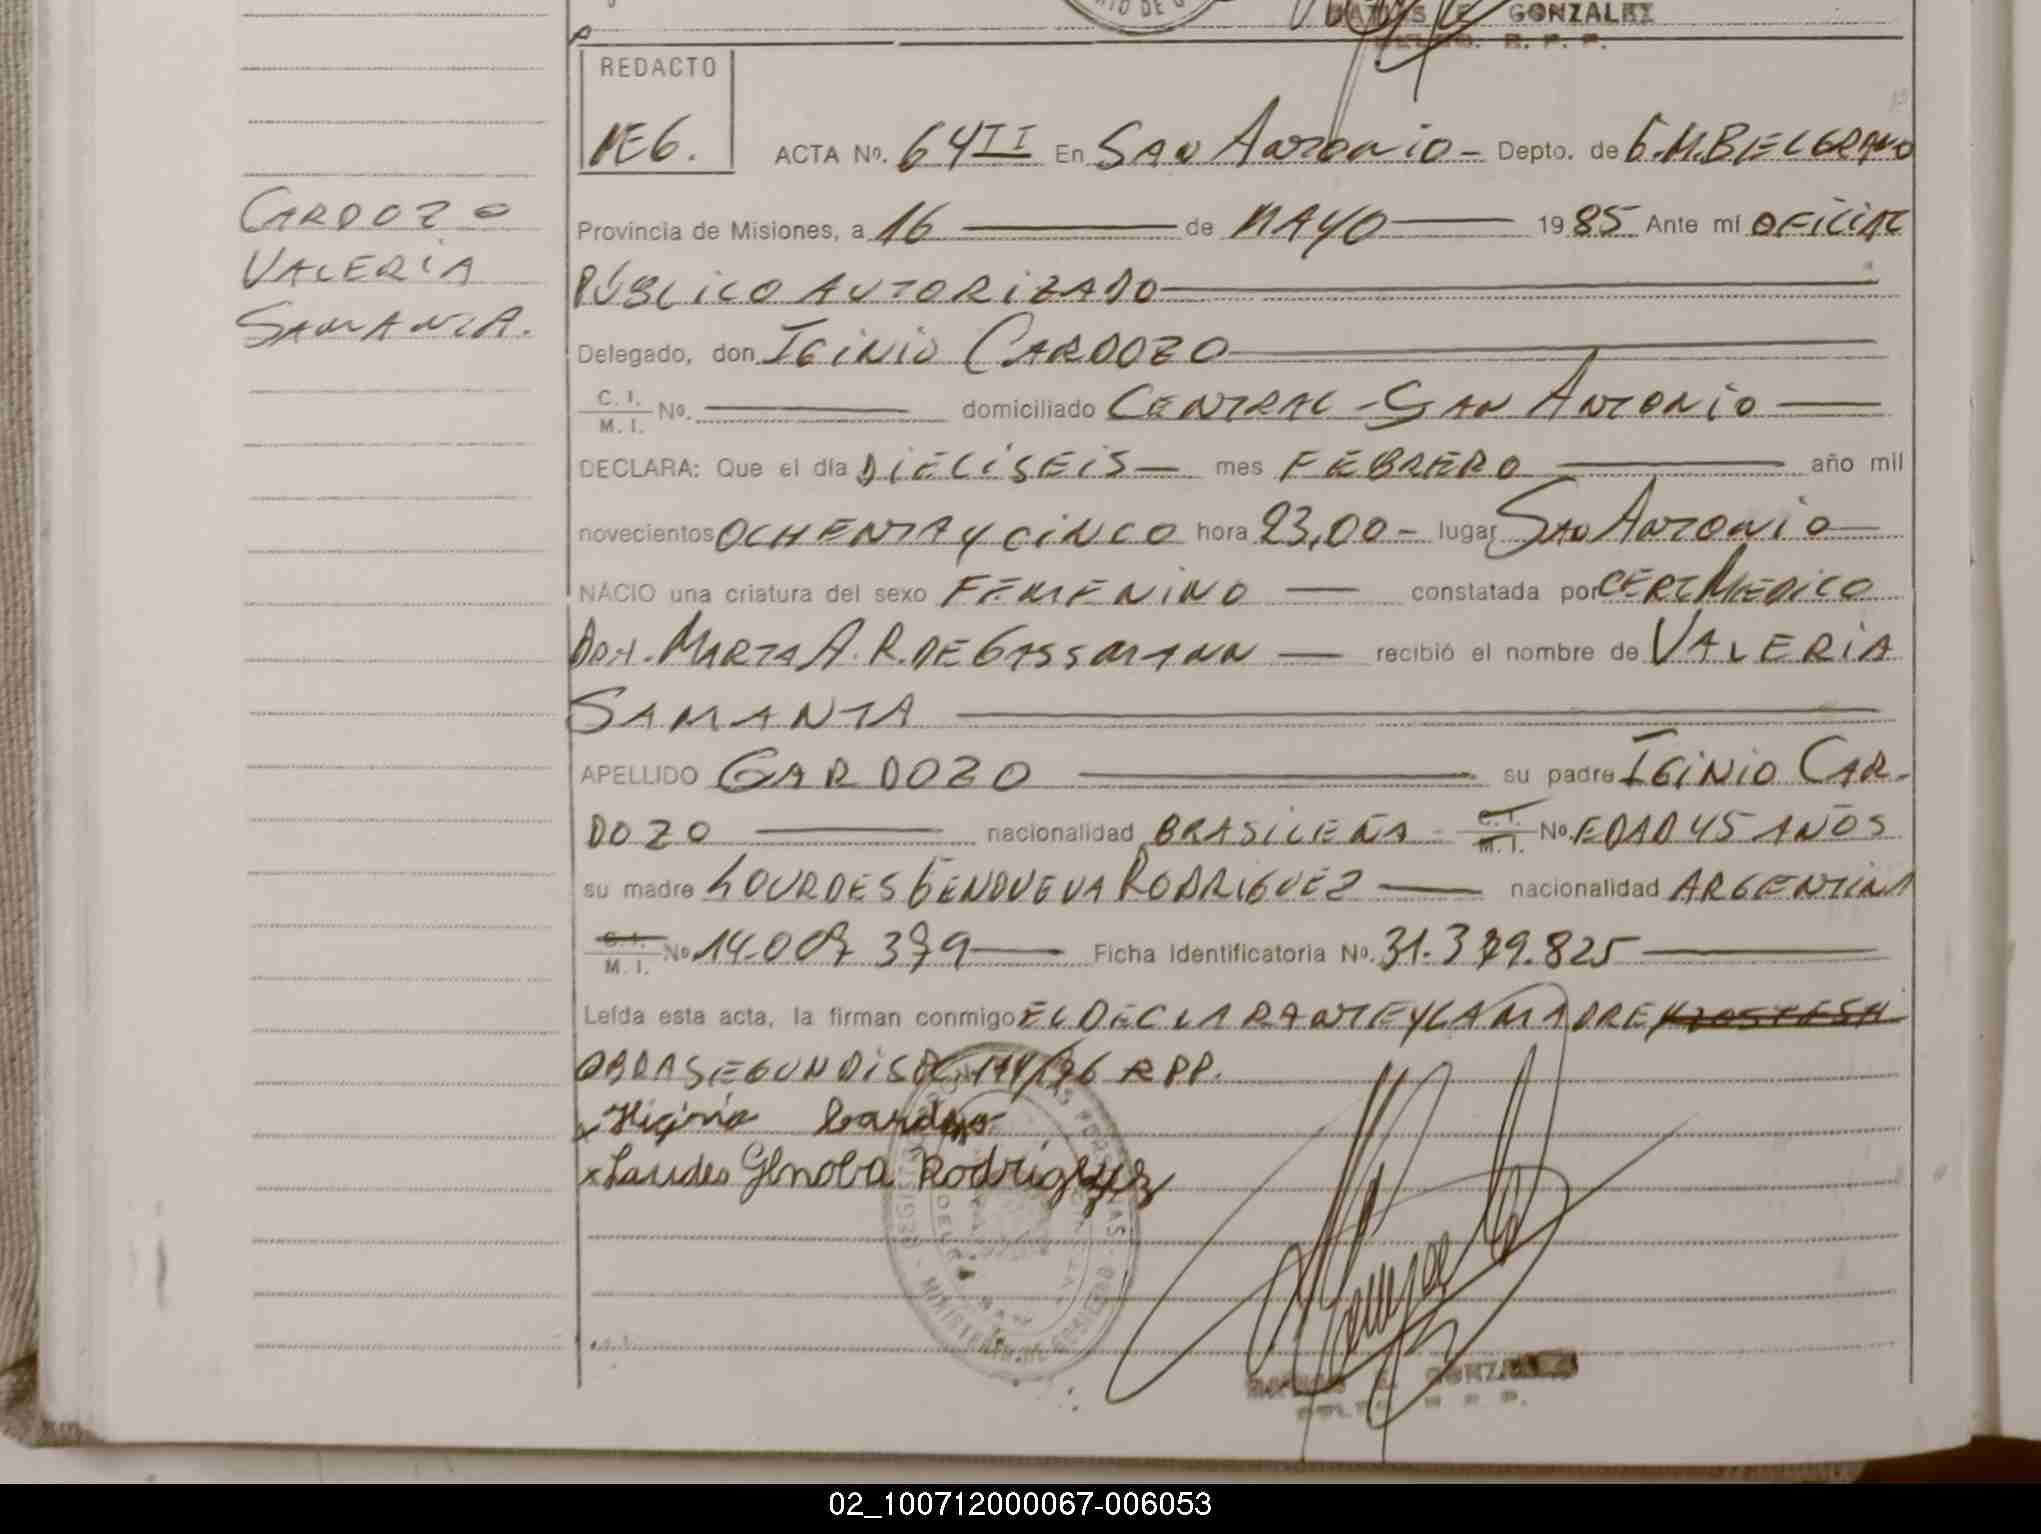 MATIAS E. GONZALEZ
DELEG. R. P. P.
REDACTO
ME6.
ACTA Nº. 64 II En SAN ANTONIO - Depto. de G.M.BELGRANO
CARDOZO
VALERIA
SAMANTA.
Provincia de Misiones, a 16 de MAYO 1985 Ante mí OFICIAL
PÚBLICO AUTORIZADO
Delegado, don IGINIO CARDOZO
C. I.
M. I. Nº. domiciliado CENTRAL - SAN ANTONIO
DECLARA: Que el día DIECISEIS mes FEBRERO año mil
novecientos OCHENTA Y CINCO hora 23,00 - lugar SAN ANTONIO
NACIO una criatura del sexo FEMENINO constatada por CERT MEDICO
DRA. MARTA A. R. DE GASSMANN recibió el nombre de VALERIA
SAMANTA
APELLIDO CARDOZO su padre IGINIO CAR-
DOZO nacionalidad BRASILEÑA - C. I. M. I. Nº. EDAD 45 AÑOS
su madre LOURDES GENOVEVA RODRIGUEZ nacionalidad ARGENTINA
C. I. M. I. Nº 14.009 379 Ficha Identificatoria Nº. 31.379.825
Leída esta acta, la firman conmigo EL DECLARANTE Y LA MADRE
OBRA SEGUN DISP. 114/76 R P P.
x Higinio Cardozo
x Laudes Genoba Rodriguez
REGISTRO PERSONAS - MINISTERIO DE GOBIERNO
GONZALEZ
02_100712000067-006053